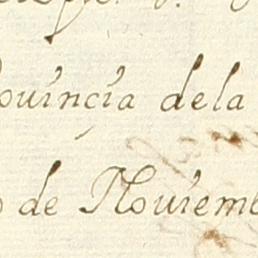 ouinçia dela
o de Nouiemb